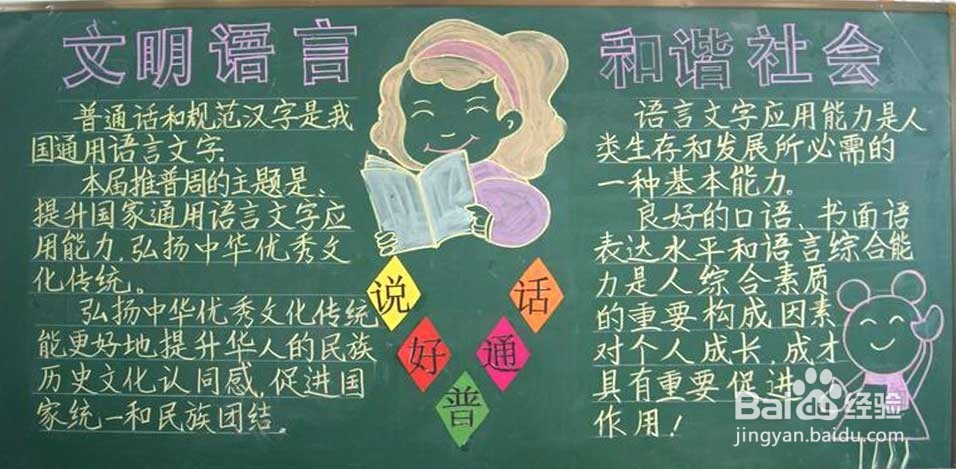 文明语言
普通话和规范汉字是我
国通用语言文字.
本届推普周的主题是、
提升国家通用语言文字应
用能力,弘扬中华优秀文
化传统。
弘扬中华优秀文化传统
能更好地提升华人的民族
历史文化认同感,促进国
家统一和民族团结.
说
好
普
通
话
和谐社会
语言文字应用能力是人
类生存和发展所必需的
一种基本能力。
良好的口语、书面语
表达水平和语言综合能
力是人综合素质
的重要构成因素
对个人成长,成才
具有重要促进
作用!
Baidu经验
jingyan.baidu.com